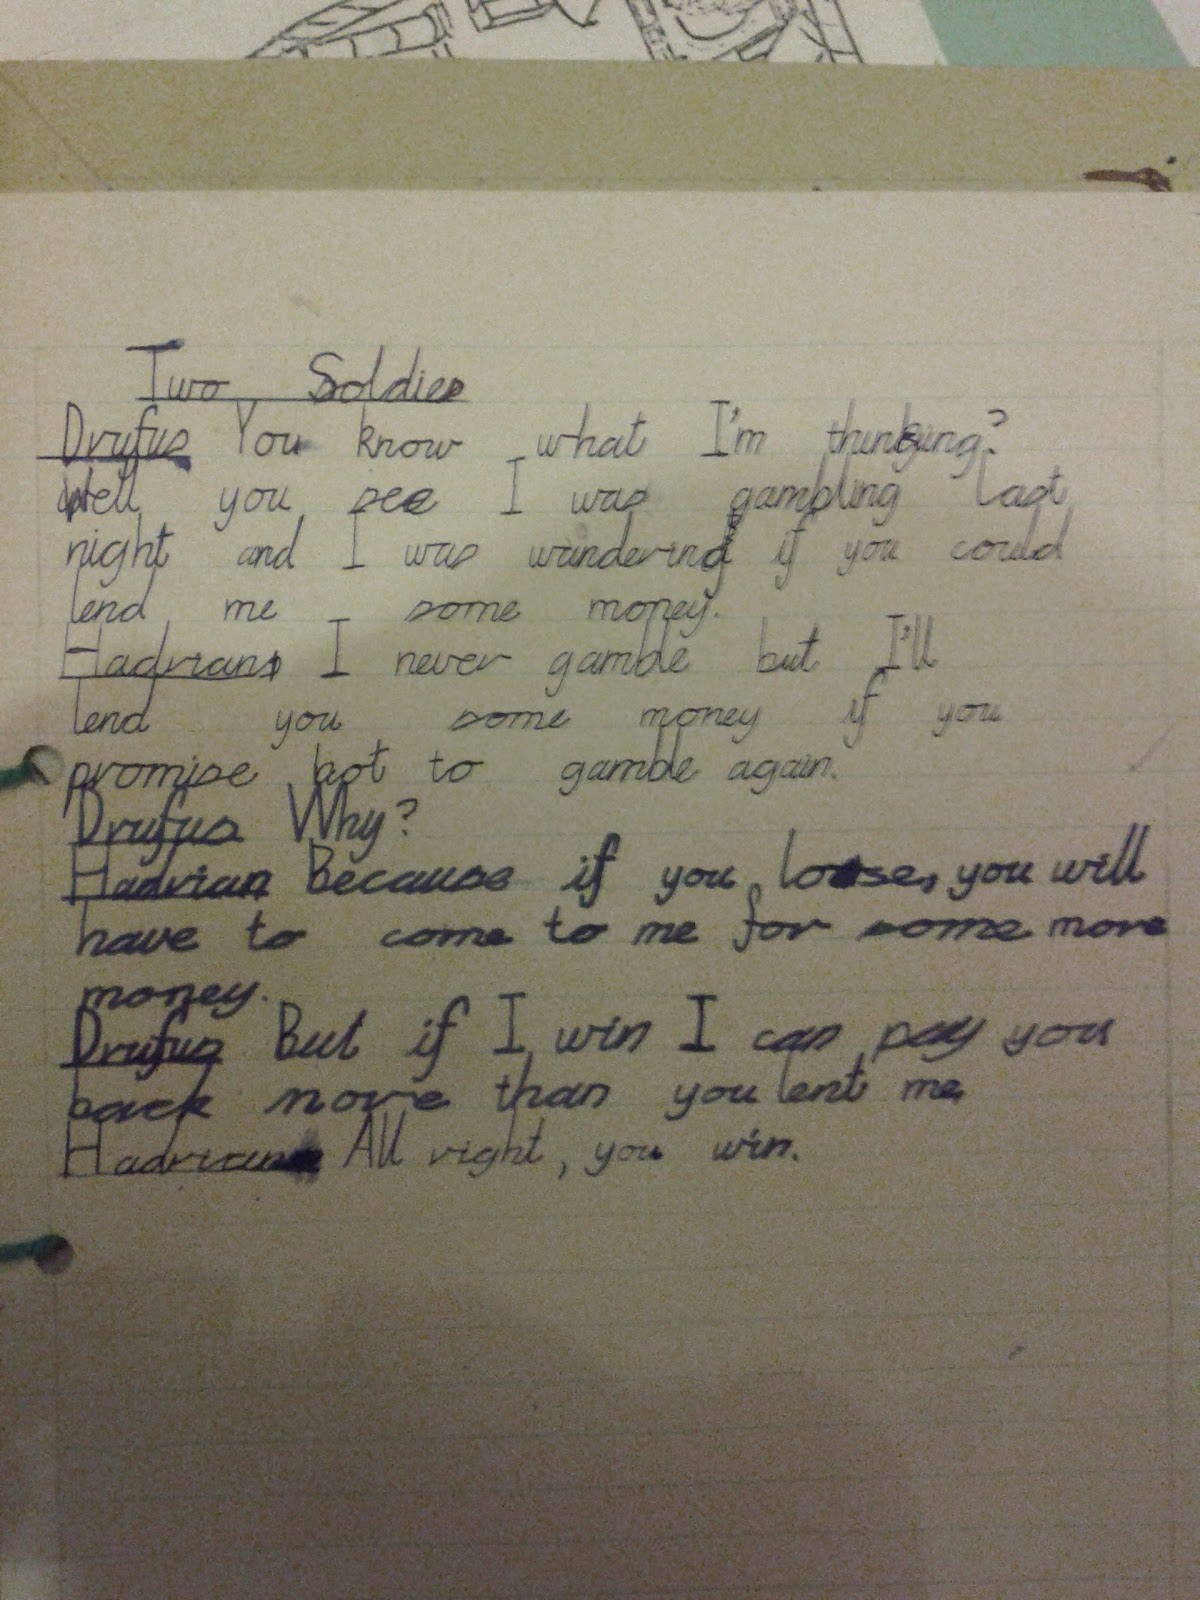 Two Soldier
Drufus You know what I'm thinking?
Well you see I was gambling last
night and I was wandering if you could
lend me some money.
Hadrian I never gamble but I'll
lend you some money if you
promise not to gamble again.
Drufus Why?
Hadrian Because if you loose, you will
have to come to me for some more
money.
Drufus But if I win I can pay you
back more than you lent me
Hadrian All right, you win.